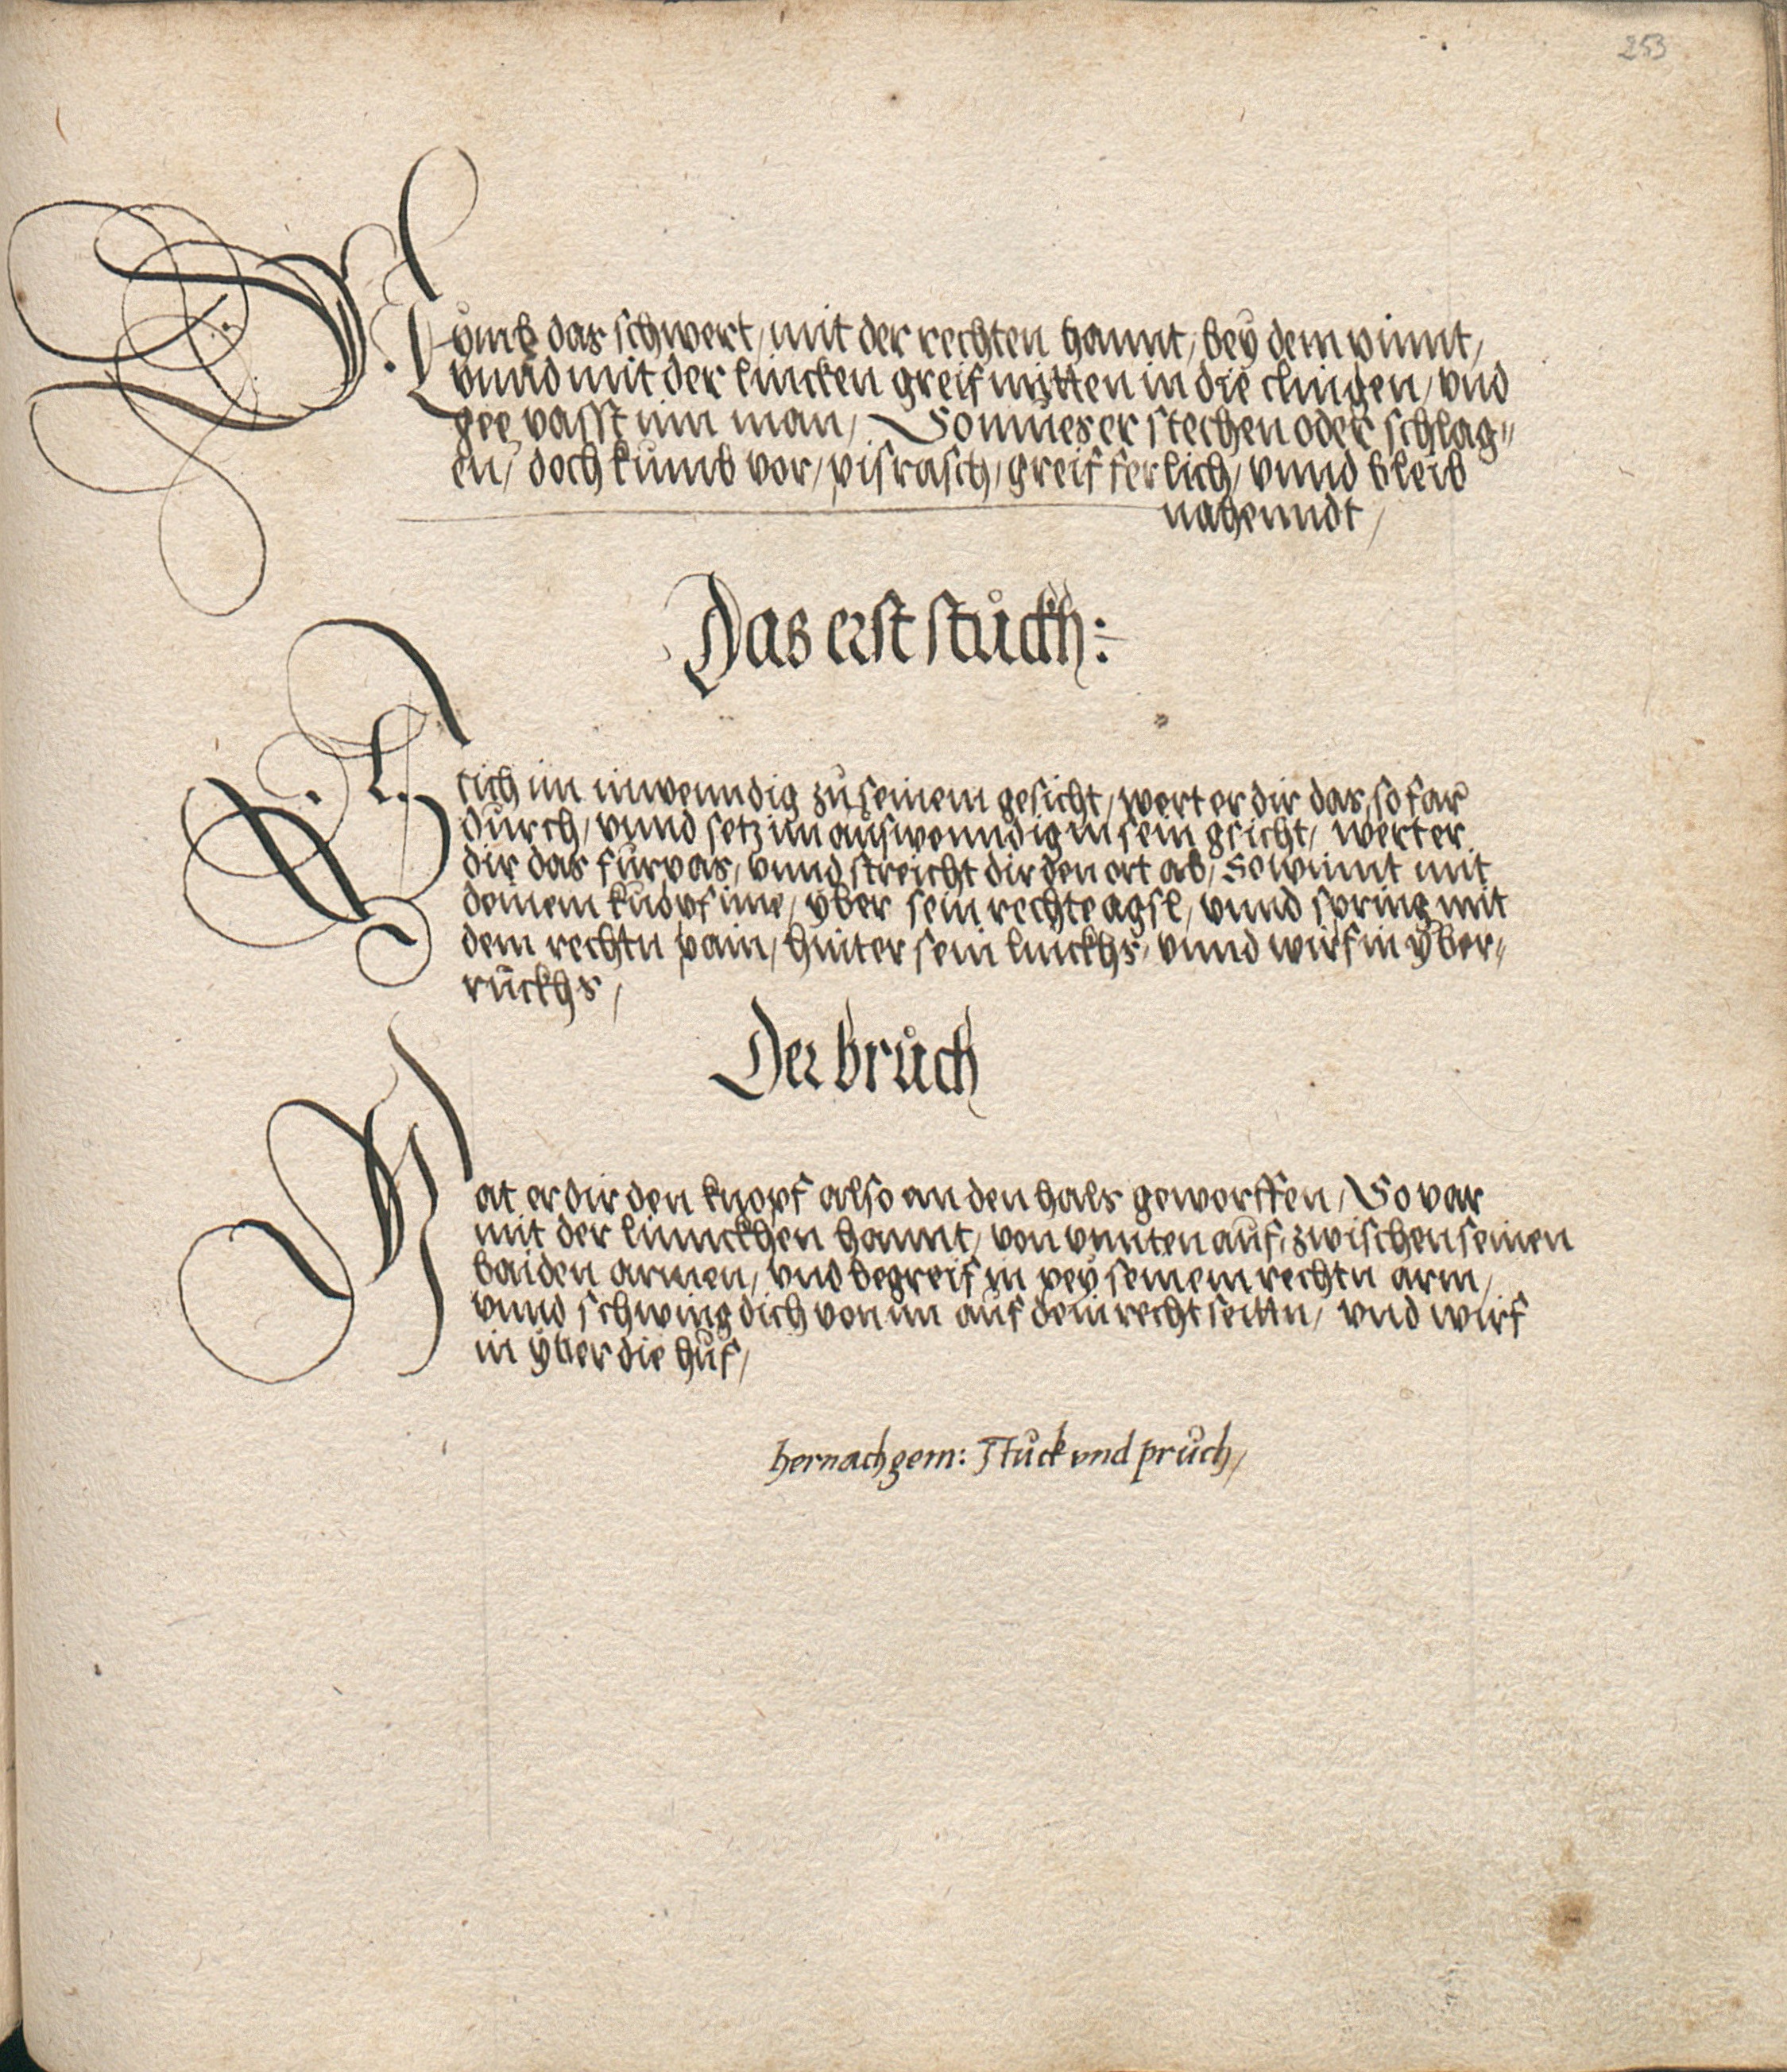 253
Nymb das schwert, mit der rechten hannt, bey dem pinnt,
vnnd mit der lincken greif mitten in die clingen, vnd
gee vasst inn man, So mues er stechen oder schlag„
en, doch kumb vor, pis rasch, greif ferlich, vnnd bleib
nahenndt,
Das erst stuckh:
Stich im inwenndig zu seinem gesicht, wert er dir das, so far
durch, vnnd setz im auswenndig in sein gsicht, wert er
dir das furpas, vnnd streicht dir den ort ab, So winnt mit
deinem knopf ime, yber sein rechte agsl, vnnd spring mit
dem rechtn pain, hinter sein linckhs, vnnd wirf in yber„
ruckhs,
Der bruch
Hat er dir den knopf also an den hals geworffen, So var
mit der linnckhen hannt, von vnnten auf, zwischen seinen
baiden armen, vnd begreif in pey seinem rechtn arm,
vnnd schwing dich von im auf dein recht seittn, vnd wirf
in yber die huf,
hernach gem: stuck vnd pruch,